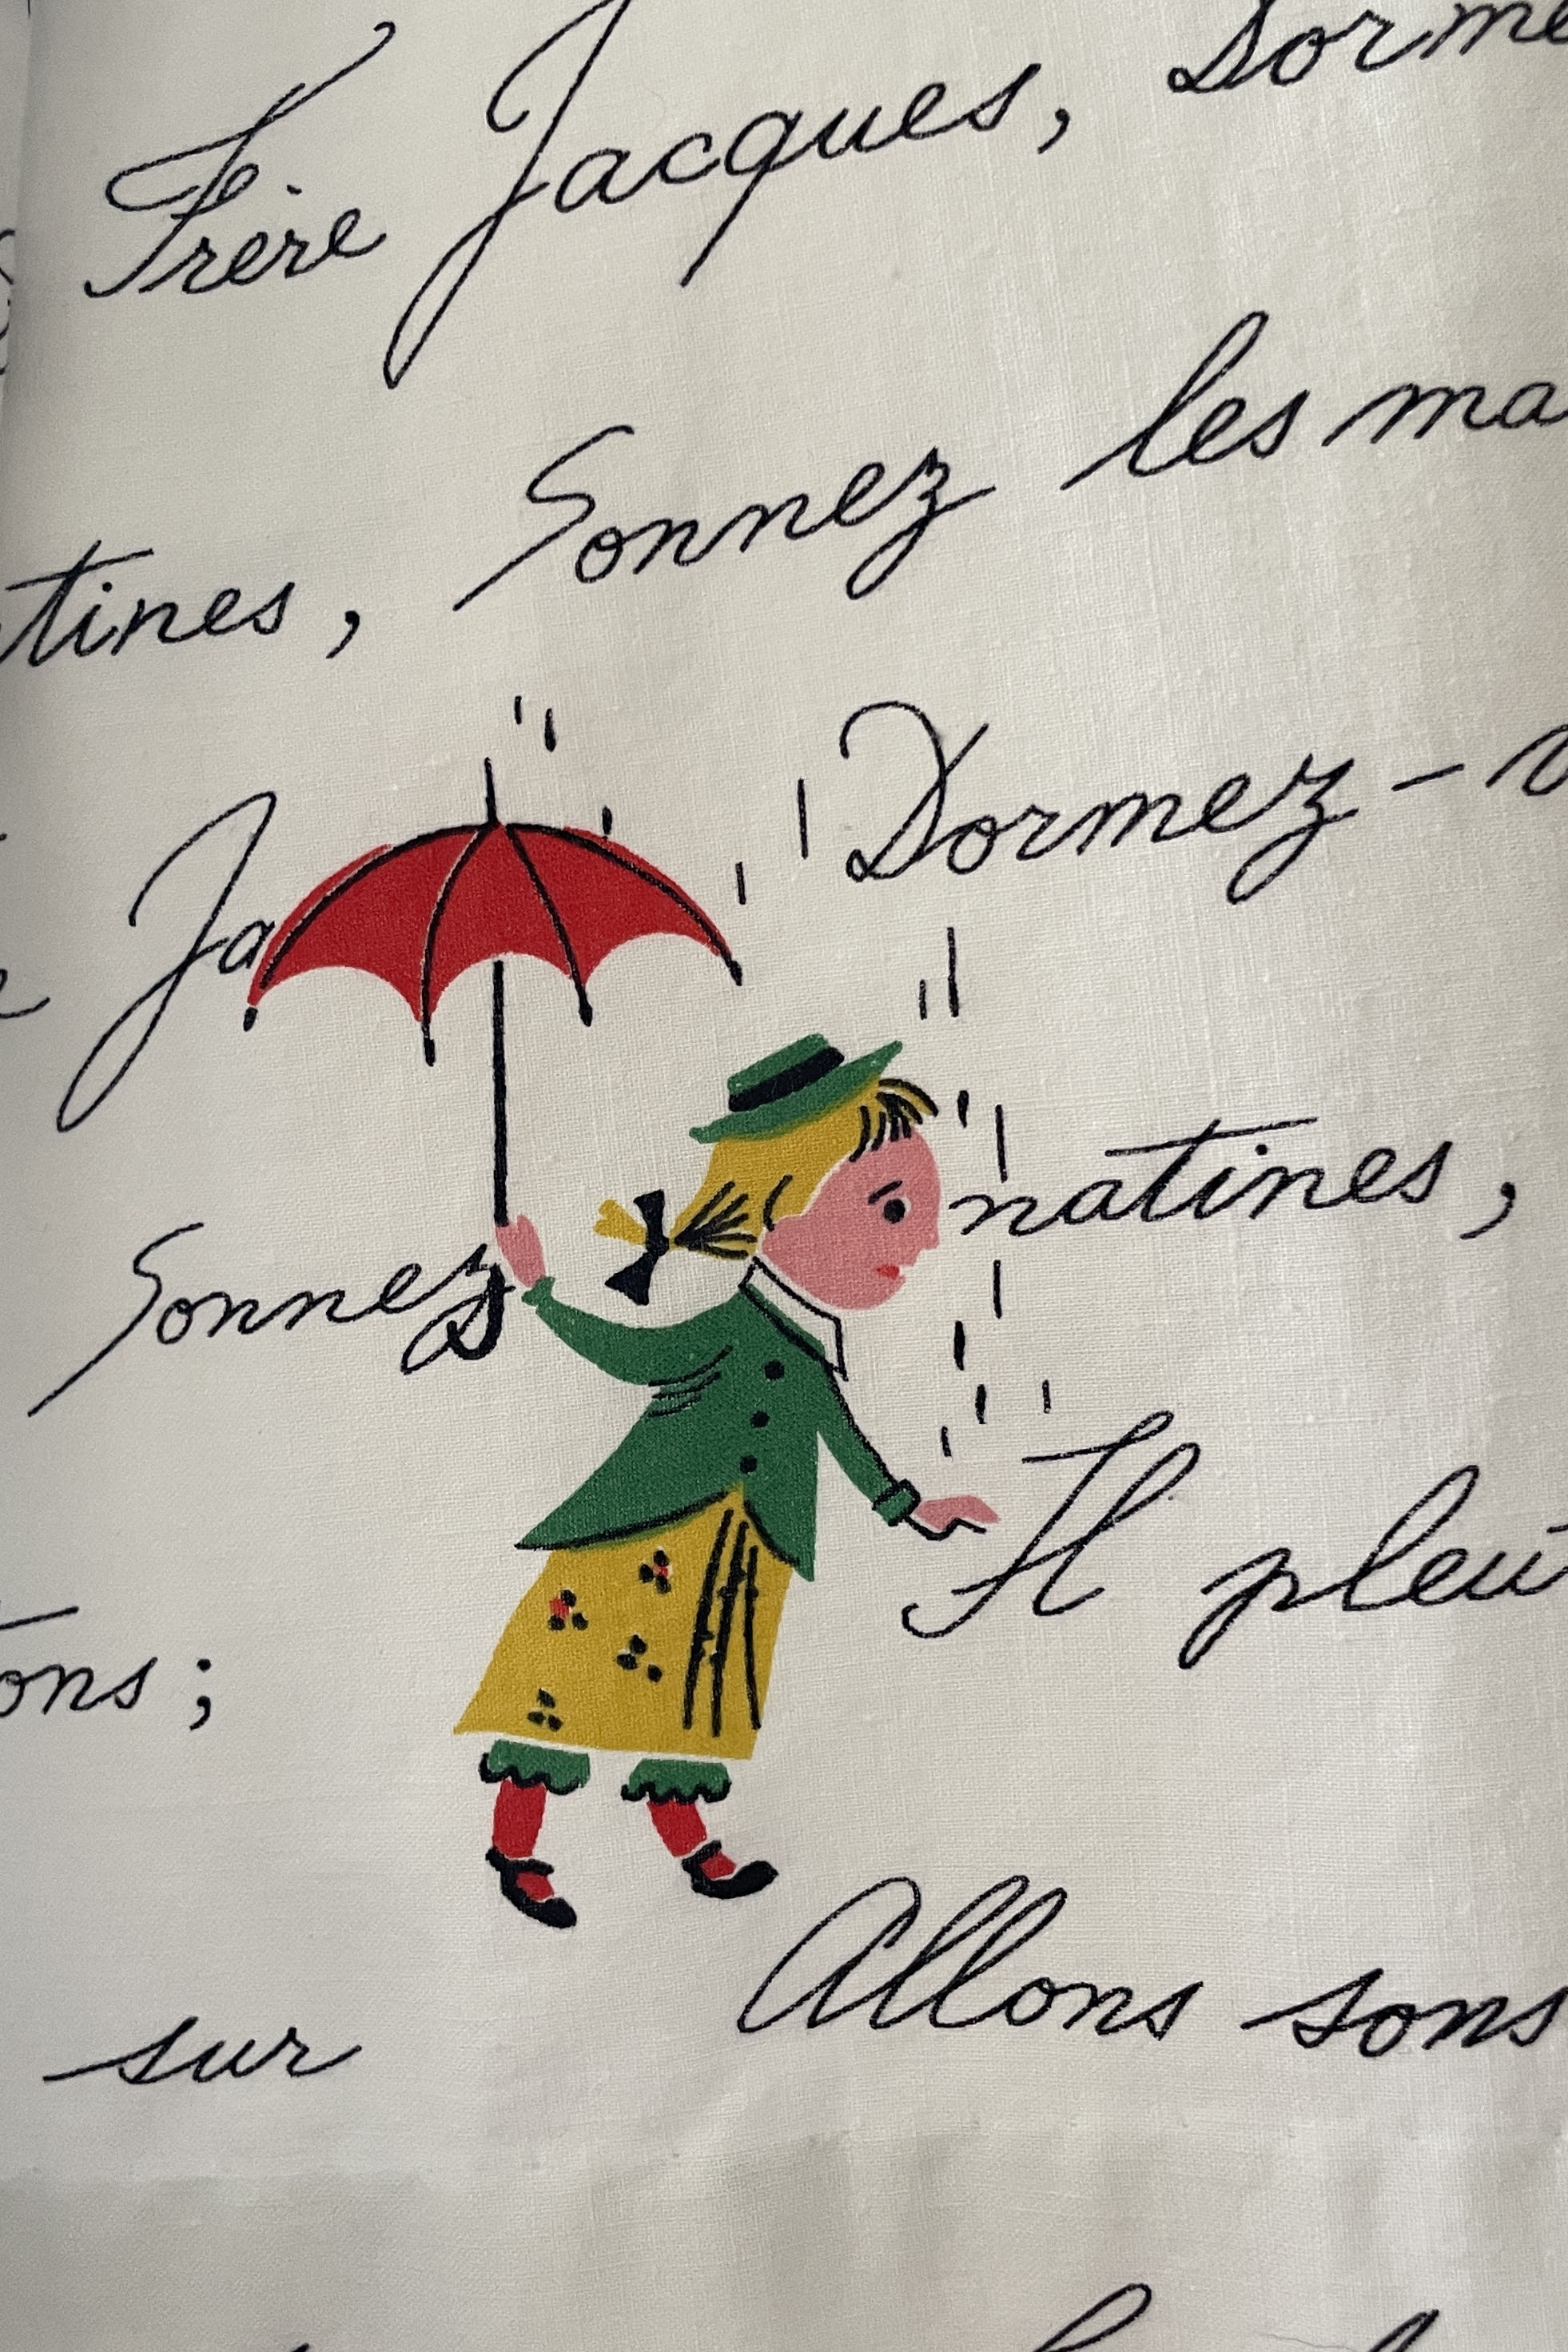 Frère Jacques, Dorme
tines, Sonnez les ma
Ja Dormez-v
Sonnez natines,
Il pleu
ons;
Allons sons
sur